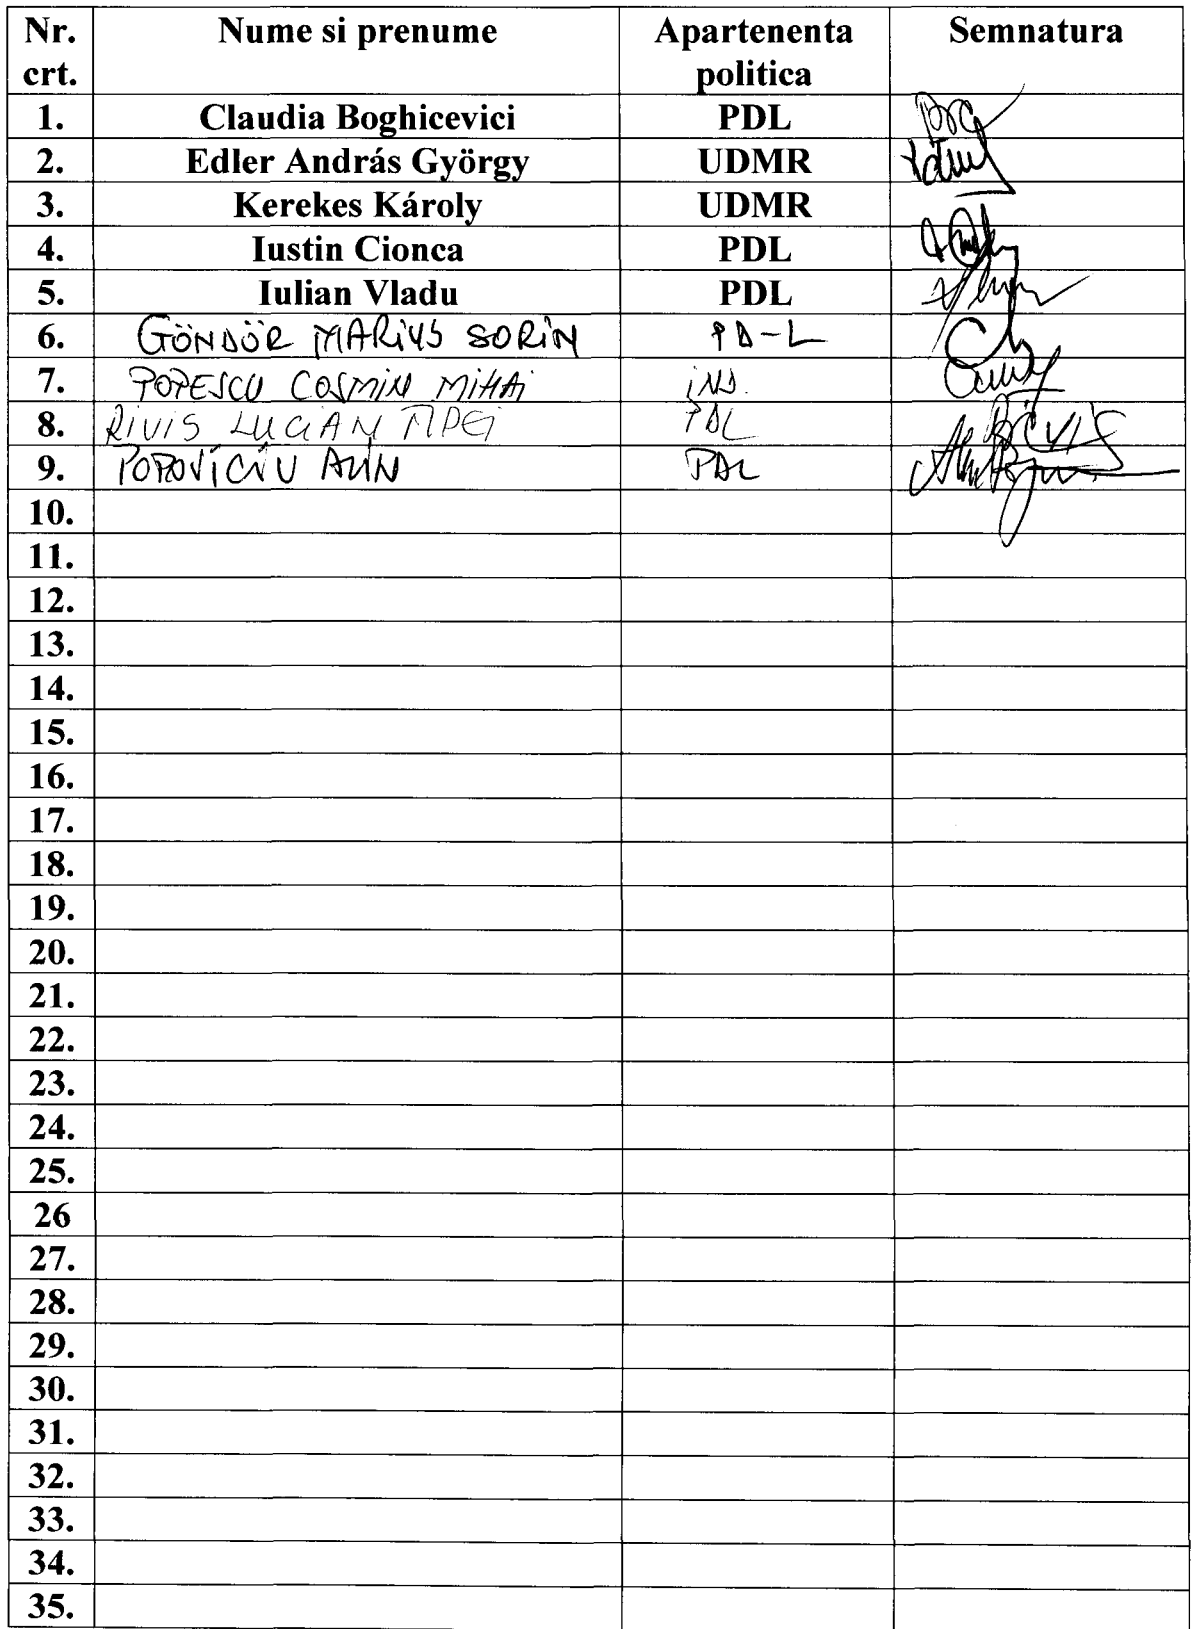 Nr. crt. Nume si prenume Apartenenta politica Semnatura
1. Claudia Boghicevici PDL
2. Edler András György UDMR
3. Kerekes Károly UDMR
4. Iustin Cionca PDL
5. Iulian Vladu PDL
6. GÖNDÖR MARIUS SORIN PD-L
7. POPESCU COSMIN MIHAI IND.
8. RIVIS LUCIAN PDL
9. POPOVICIU ALIN PDL
10.
11.
12.
13.
14.
15.
16.
17.
18.
19.
20.
21.
22.
23.
24.
25.
26
27.
28.
29.
30.
31.
32.
33.
34.
35.